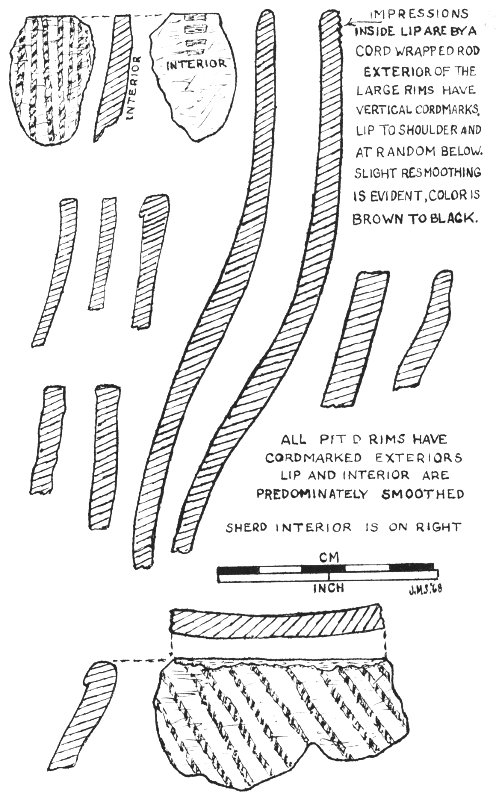 IMPRESSIONS
INSIDE LIP ARE BY A
CORD WRAPPED ROD
EXTERIOR OF THE
LARGE RIMS HAVE
VERTICAL CORDMARKS,
LIP TO SHOULDER AND
AT RANDOM BELOW.
SLIGHT RESMOOTHING
IS EVIDENT, COLOR IS
BROWN TO BLACK.
INTERIOR
INTERIOR
ALL PIT D RIMS HAVE
CORDMARKED EXTERIORS
LIP AND INTERIOR ARE
PREDOMINATELY SMOOTHED
SHERD INTERIOR IS ON RIGHT
CM
INCH
J.M.S.'68